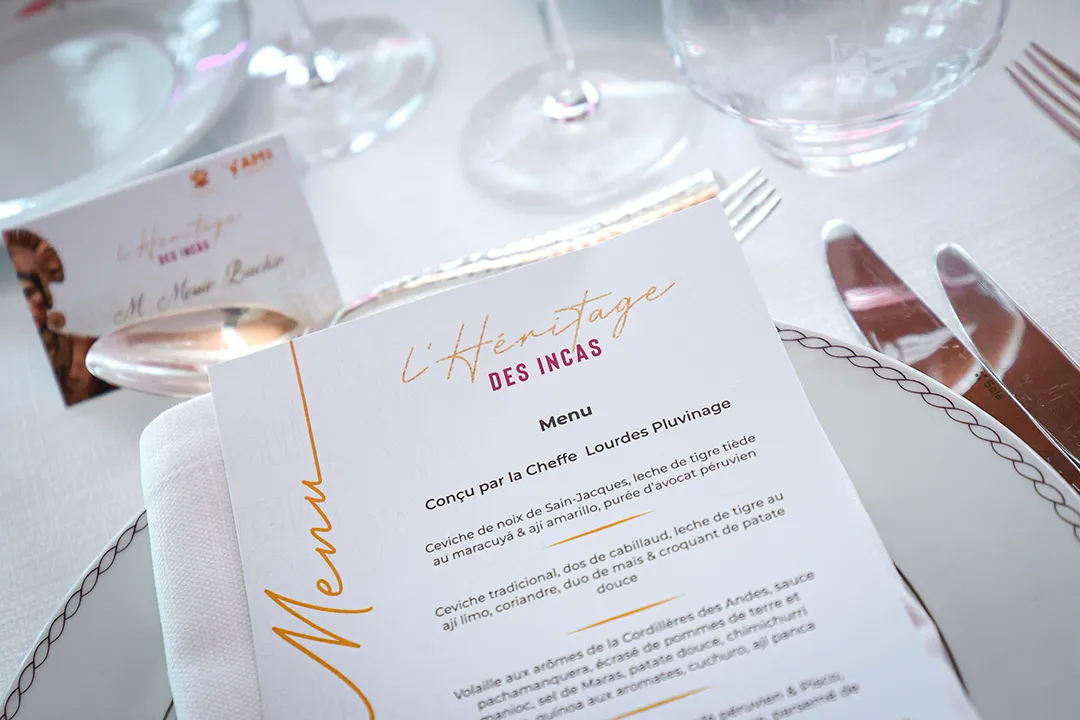 YAMÉ
l'Héritage
DES INCAS
l'Héritage
DES INCAS
Menu
Menu
Conçu par la Cheffe Lourdes Pluvinage
Ceviche de noix de Sain-Jacques, leche de tigre tiède
au maracuyá & ají amarillo, purée d'avocat péruvien
Ceviche tradicional, dos de cabillaud, leche de tigre au
ají limo, coriandre, duo de mais & croquant de patate
douce
Volaille aux arômes de la Cordillères des Andes, sauce
pachamanquera, écrasé de pommes de terre et
manioc, sel de Maras, patate douce, chimichurri
quinoa aux aromates, cuchuro, ají panca
péruvien &
parsemé de